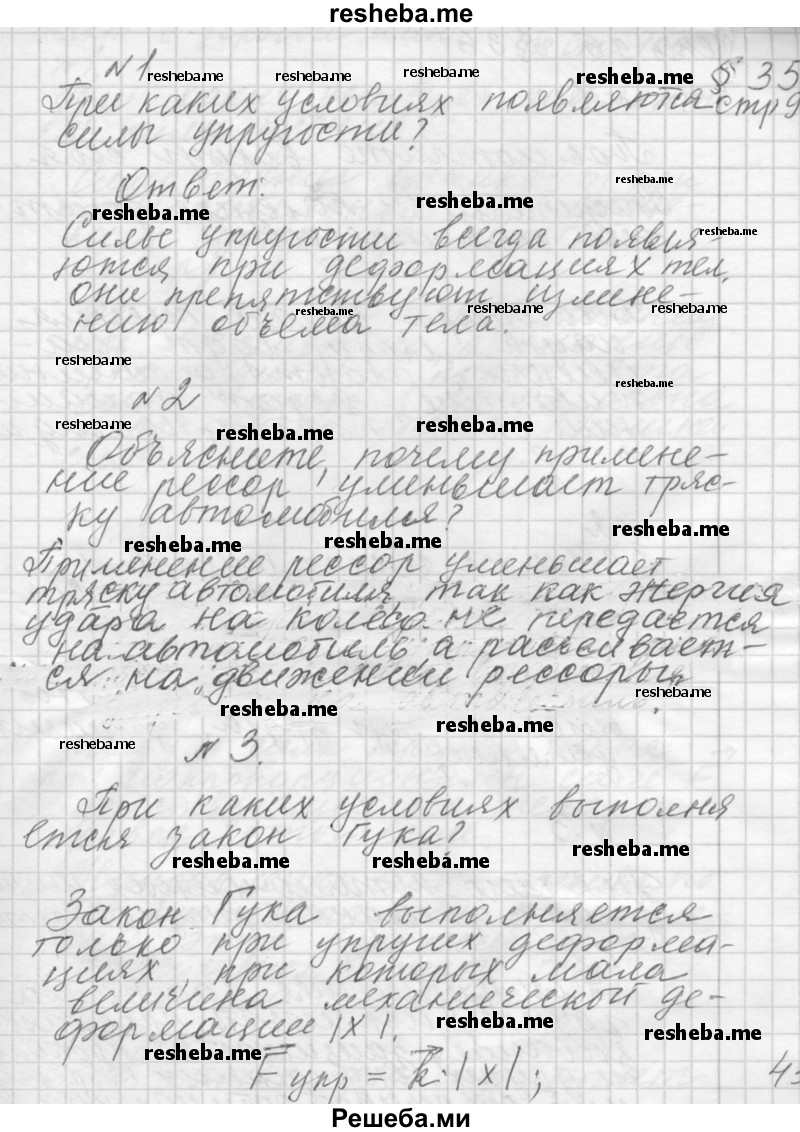 resheba.me
№1 resheba.me resheba.me resheba.me resheba.me § 35
При каких условиях появляются стр 9
силы упругости?
Ответ: resheba.me
resheba.me resheba.me
Силы упругости всегда появля- resheba.me
ются при деформациях тел,
они препятствуют измене-
resheba.me resheba.me resheba.me
нию объёма тела.
resheba.me
№2 resheba.me
resheba.me resheba.me resheba.me
Объясните, почему примене-
ние рессор уменьшает тряс-
ку автомобиля? resheba.me
resheba.me resheba.me
Применение рессор уменьшает
тряску автомобиля, так как энергия
удара на колесо не передается
на автомобиль, а рассеивает-
ся на движении рессоры.
resheba.me
resheba.me resheba.me
resheba.me № 3.
При каких условиях выполня
ется закон Гука?
resheba.me resheba.me resheba.me
Закон Гука выполняется
только при упругих деформа-
циях, при которых мала
величина механической де-
формации |x|. resheba.me resheba.me
resheba.me
F упр = k·|x|;
Решеба.ми